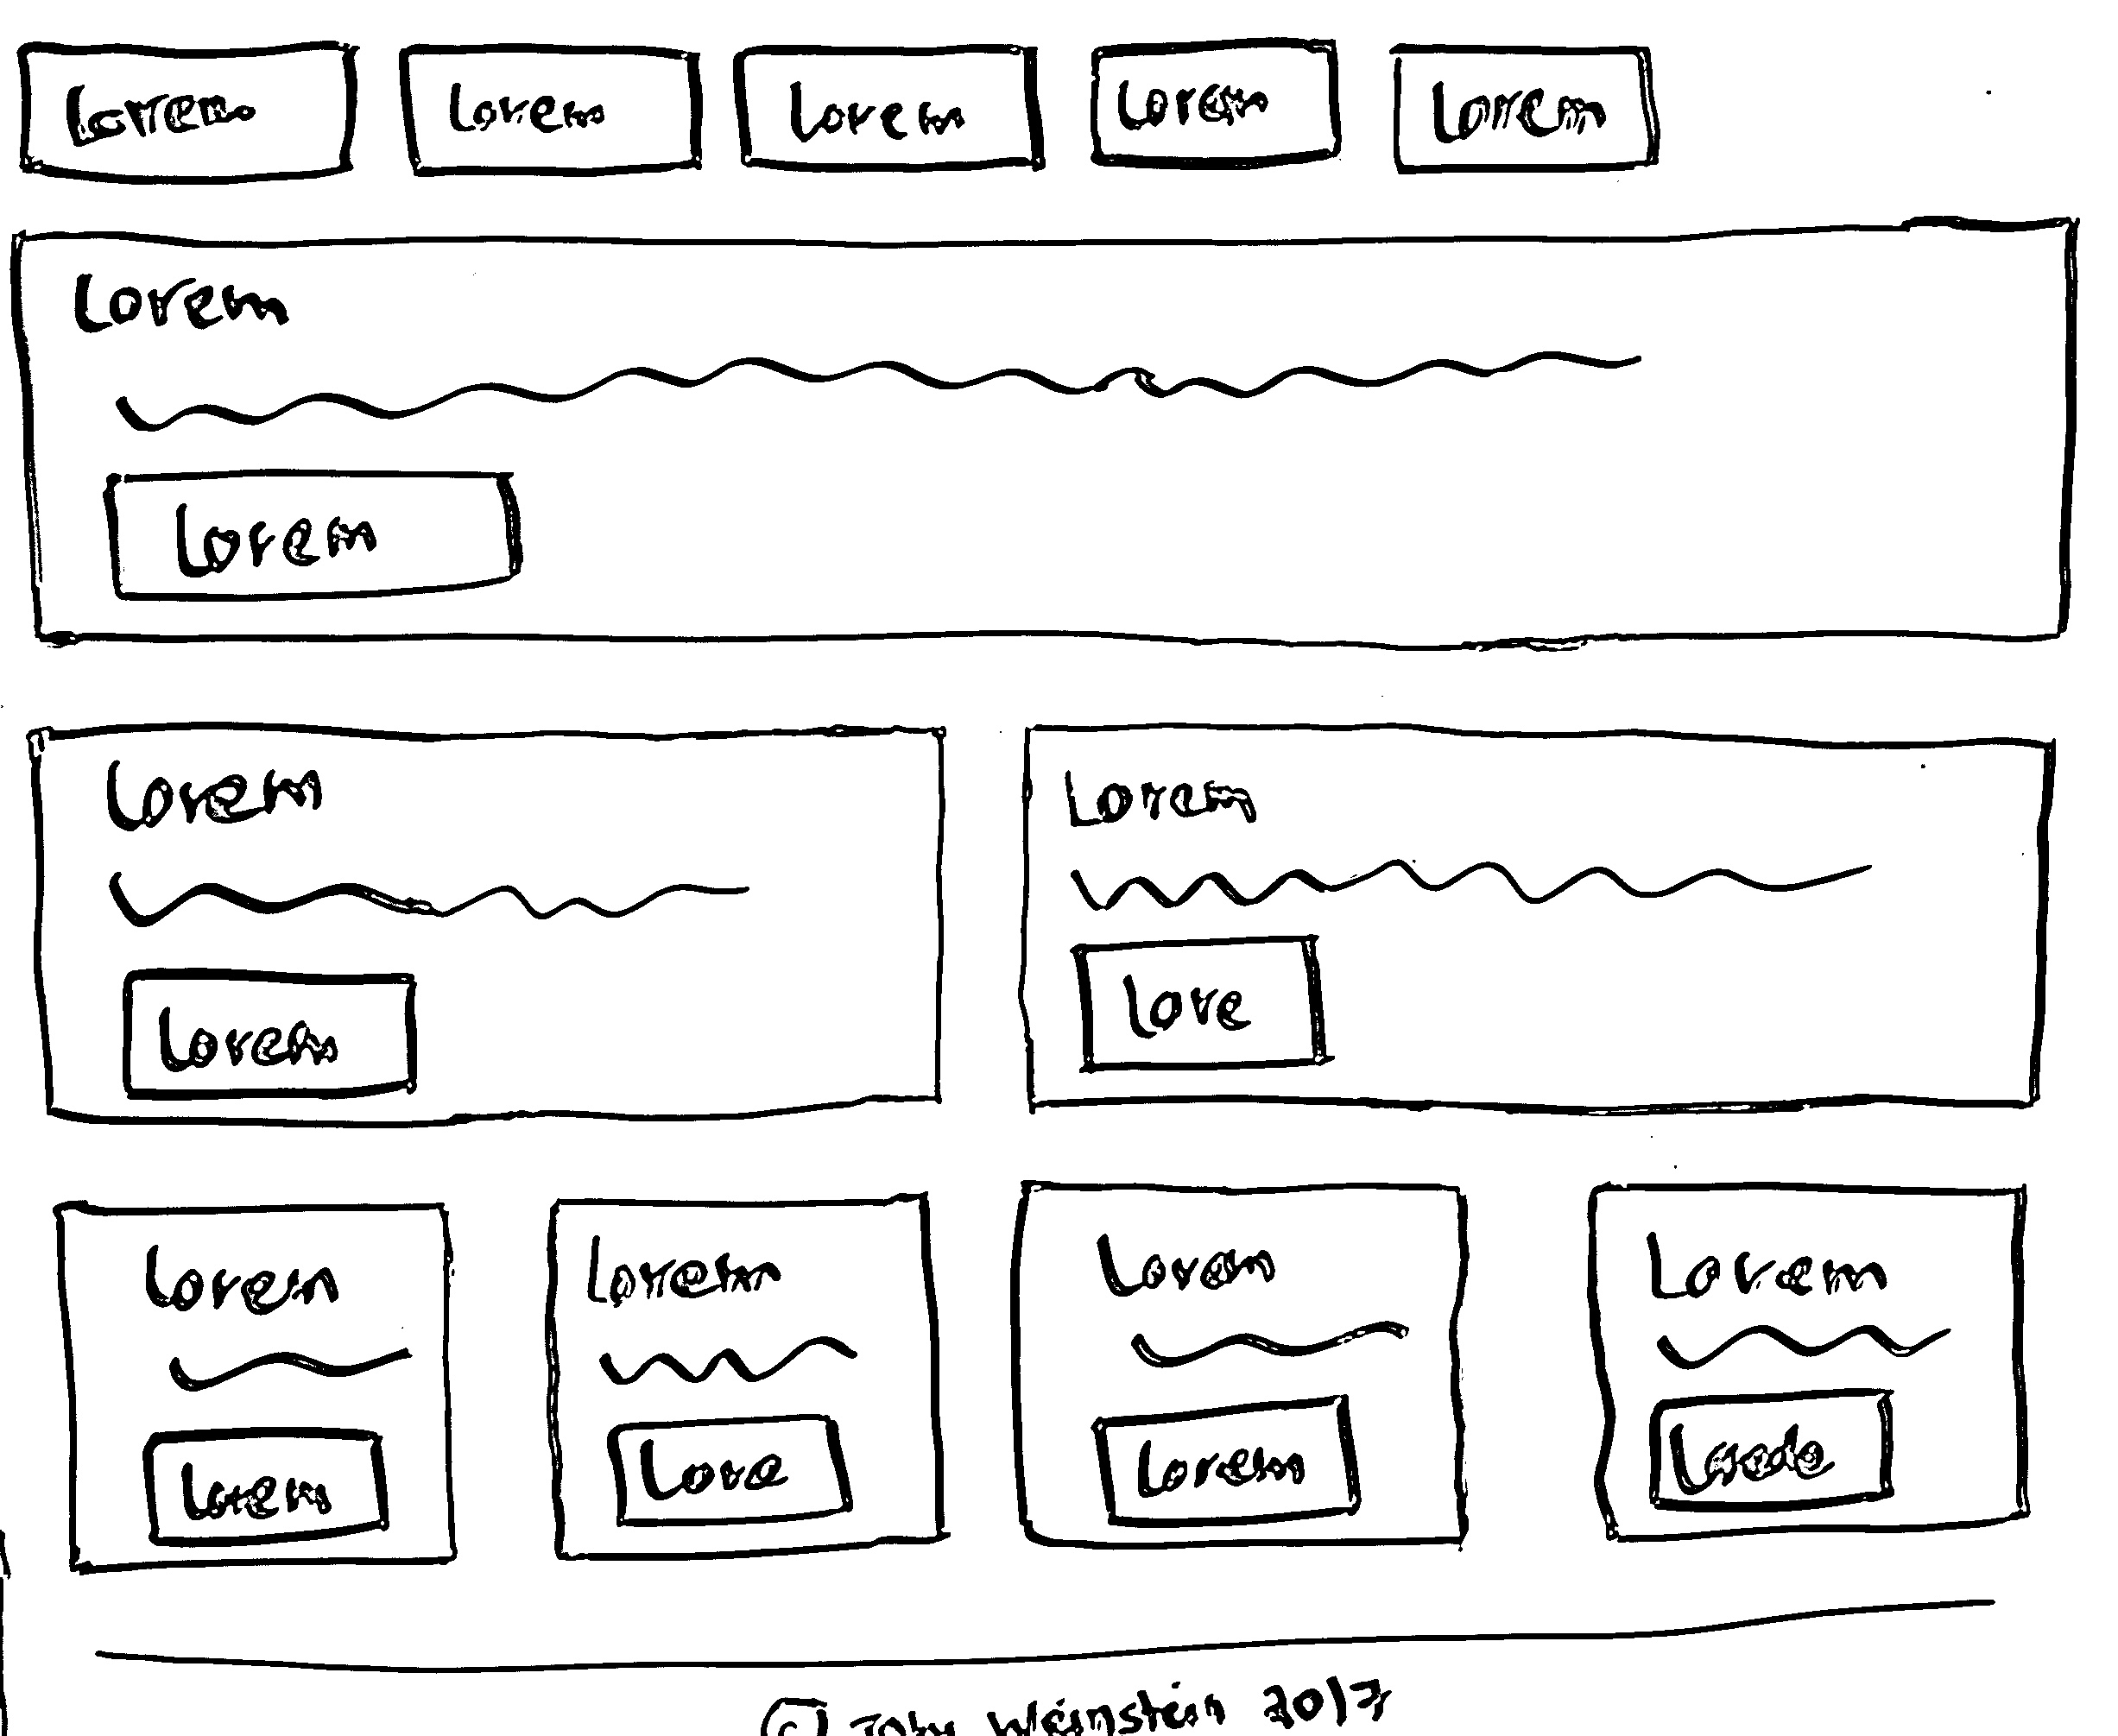 Lorem Lorem Lorem Lorem Lorem
Lorem
Lorem
Lorem Lorem
Lorem Lore
Lorem Lorem Lorem Lorem
Lorem Lore Lorem
© John Weinstein 2017